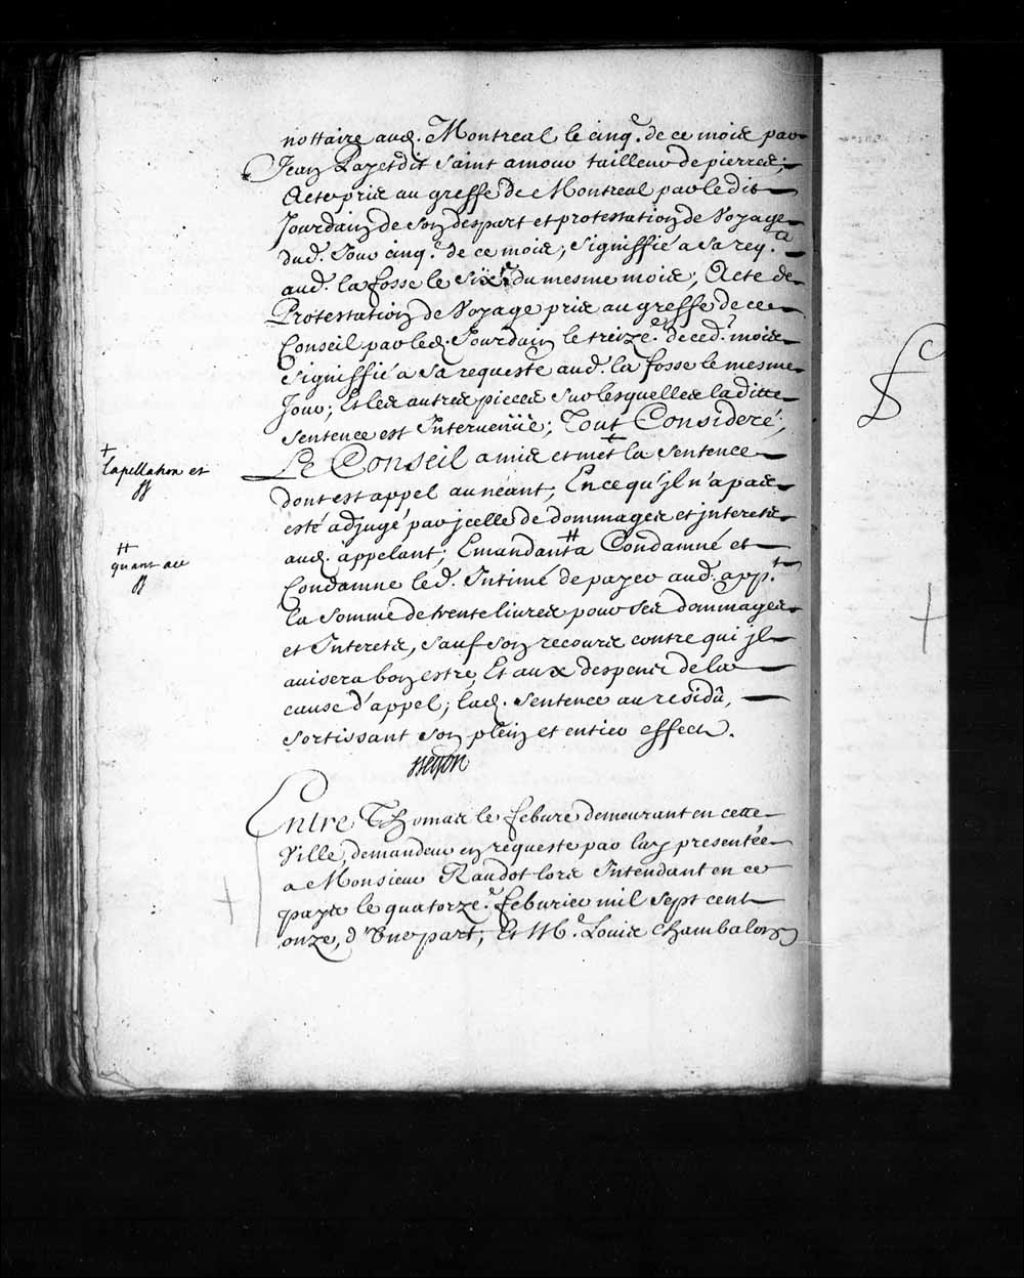 nottaire aud. Montreal le cinq.e de ce mois par
Jean Payet dit saint amour tailleur de pierres;
Acte pris au greffe de Montreal par le dit
Jourdain de son despart et protestation de Voyage
dud. Jour cinq.e de ce mois; signiffié a sa req.te
aud. la fosse le six.e du mesme mois; Acte de
Protestation de Voyage pris au greffe de ce
Conseil par led. Jourdain le treize.e de ced.t mois
signiffié a sa requeste aud. la fosse le mesme
Jour; Et les autres pieces sur lesquelles la ditte
sentence est Intervenüe; Tout Consideré;
Le Conseil a mis et met + la sentence
+
lapellation et
dont est appel au néant; En ce qu'jl n'a pas
esté adjugé par jcelle de dommages et jnterets
aud. appelant; Emandant # a Condamné et
#
quant ace
Condamne led. Intimé de payer aud. app.t
la somme de trente livres pour ses dommages
et Interets, sauf son recours contre qui jl
avisera bon estre, Et aux despens de la
cause d'appel; lad. sentence au residû,
sortissant son plein et entier effect.
Begon
Entre Thomas le febure demeurant en cette
Ville, demandeur en requeste par luy presentée
a Monsieur Raudot lors Intendant en ce
pays le quatorze.e feburier mil sept cent
onze, d'Une part; Et M.e Louis Chambalon